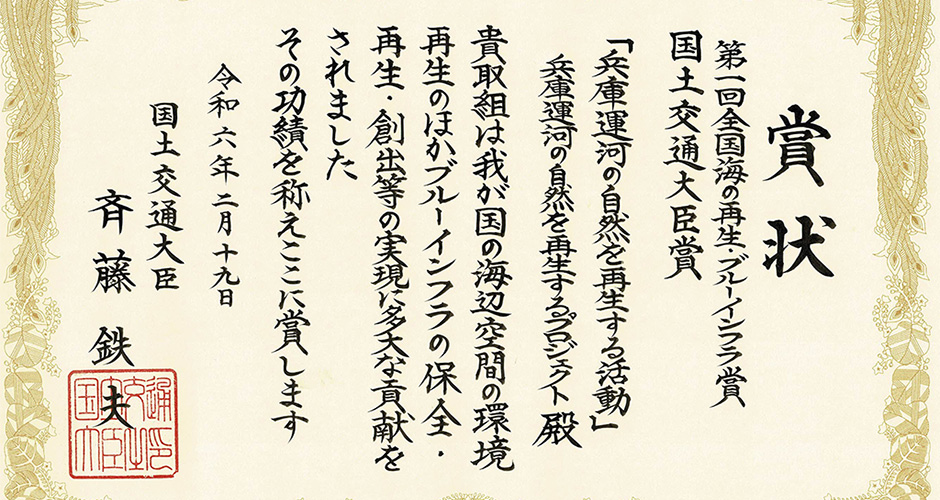 賞状
第一回全国海の再生・ブルーインフラ賞
国土交通大臣賞
「兵庫運河の自然を再生する活動」
兵庫運河の自然を再生するプロジェクト 殿
貴取組は我が国の海辺空間の環境
再生のほかブルーインフラの保全・
再生・創出等の実現に多大な貢献を
されました
その功績を称えここに賞します
令和六年二月十九日
国土交通大臣
斉藤鉄夫
国土交通大臣之印